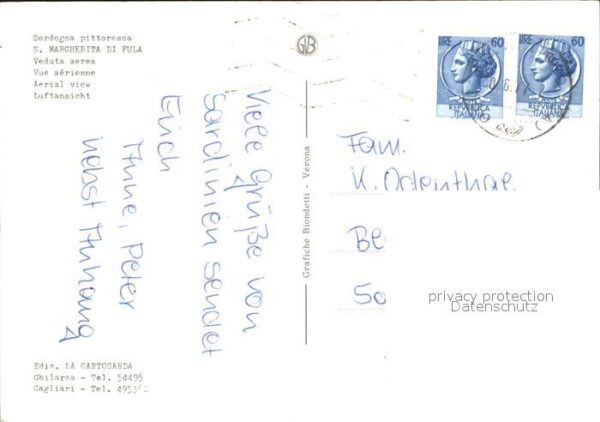 Sardegna pittoresca
S. MARGHERITA DI PULA
Veduta aerea
Vue aérienne
Aerial view
Luftansicht
GB
LIRE 60
LIRE 60
POSTE
REPUBBLICA
ITALIANA
REPUBBLICA
ITALIANA
Viele Grüße von
Sardinien sendet
Euch
Anne, Peter
nebst Anhang
Grafiche Biondetti - Verona
Fam.
K. Odenthal
Be
50
privacy protection
Datenschutz
Ediz. LA CARTOSARDA
Ghilarza - Tel. 54495
Cagliari - Tel.